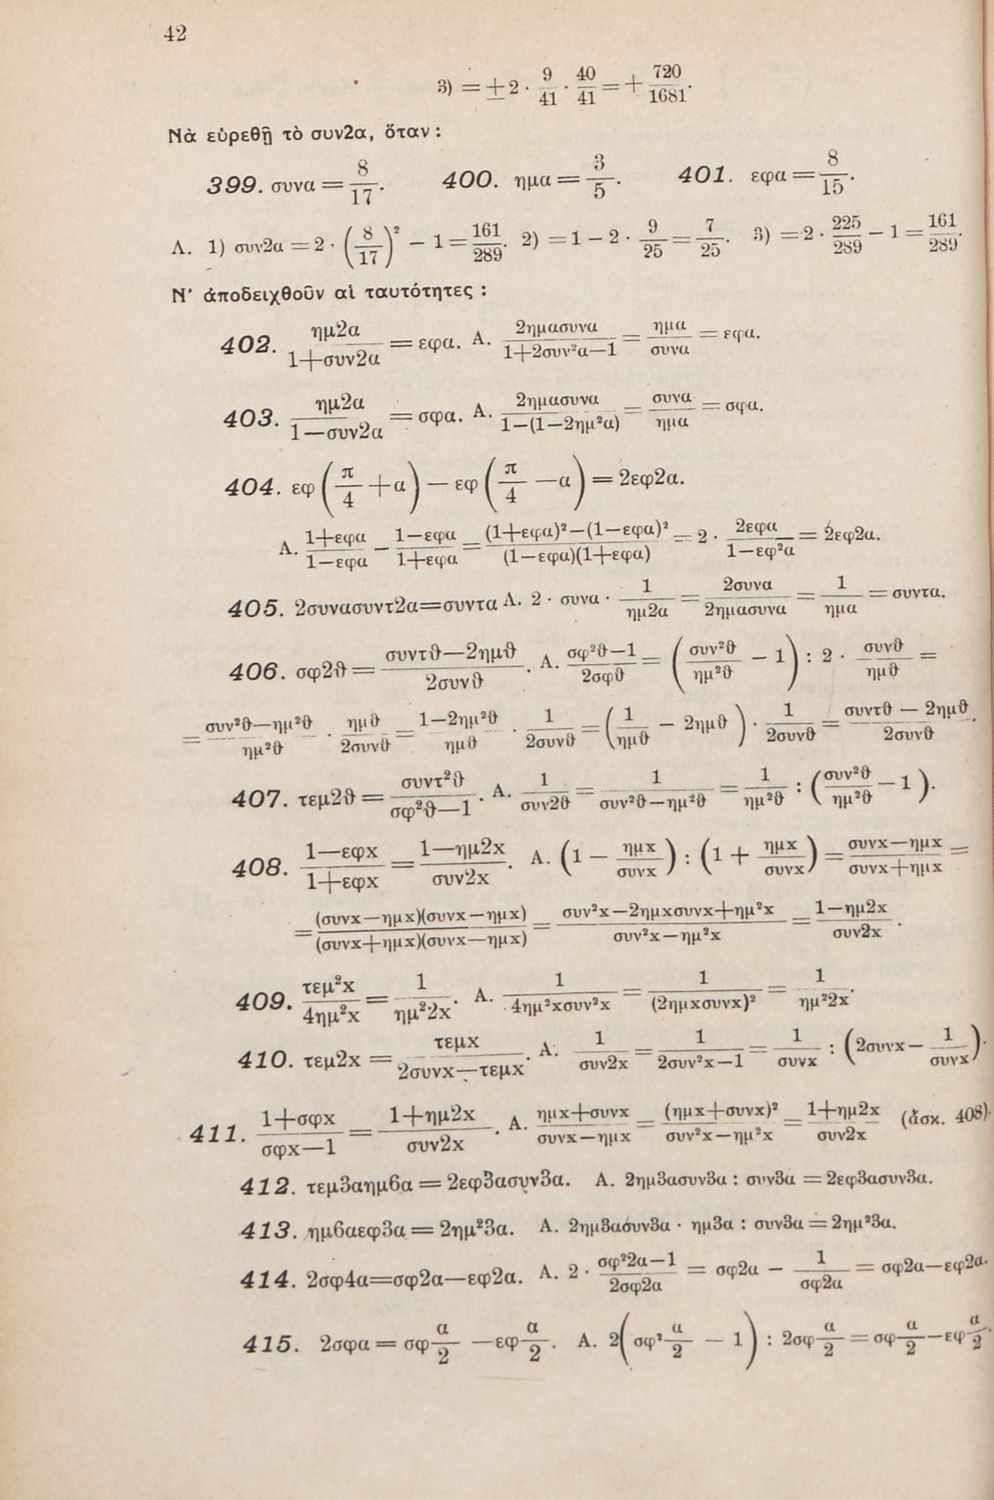 42
3) = ± 2 · 9/41 · 40/41 = + 720/1681.
Νὰ εὑρεθῇ τὸ συν2α, ὅταν :
399. συνα = 8/17. 400. ημα = 3/5. 401. εφα = 8/15.
Λ. 1) συν2α = 2 · (8/17)² — 1 = 161/289. 2) = 1 — 2 · 9/25 = 7/25. 3) = 2 · 225/289 — 1 = 161/289.
Ν' ἀποδειχθοῦν αἱ ταυτότητες :
402. ημ2α/(1+συν2α) = εφα. Λ. 2ημασυνα/(1+2συν²α—1) = ημα/συνα = εφα.
403. ημ2α/(1—συν2α) = σφα. Λ. 2ημασυνα/(1—(1—2ημ²α)) = συνα/ημα = σφα.
404. εφ(π/4 + α) — εφ(π/4 — α) = 2εφ2α.
Λ. (1+εφα)/(1—εφα) — (1—εφα)/(1+εφα) = ((1+εφα)²—(1—εφα)²)/((1—εφα)(1+εφα)) = 2 · 2εφα/(1—εφ²α) = 2εφ2α.
405. 2συνασυντ2α=συντα Λ. 2 · συνα · 1/ημ2α = 2συνα/2ημασυνα = 1/ημα = συντα.
406. σφ2θ = (συντθ—2ημθ)/2συνθ. Λ. (σφ²θ—1)/2σφθ = (συν²θ/ημ²θ — 1) : 2 · συνθ/ημθ =
= (συν²θ—ημ²θ)/ημ²θ · ημθ/2συνθ = (1—2ημ²θ)/ημθ · 1/2συνθ = (1/ημθ — 2ημθ) · 1/2συνθ = (συντθ — 2ημθ)/2συνθ.
407. τεμ2θ = συντ²θ/(σφ²θ—1). Λ. 1/συν2θ = 1/(συν²θ—ημ²θ) = 1/ημ²θ : (συν²θ/ημ²θ — 1).
408. (1—εφx)/(1+εφx) = (1—ημ2x)/συν2x. Λ. (1 — ημx/συνx) : (1 + ημx/συνx) = (συνx—ημx)/(συνx+ημx) =
= (συνx—ημx)(συνx—ημx)/(συνx+ημx)(συνx—ημx) = (συν²x—2ημxσυνx+ημ²x)/(συν²x—ημ²x) = (1—ημ2x)/συν2x.
409. τεμ²x/4ημ²x = 1/ημ²2x. Λ. 1/4ημ²xσυν²x = 1/(2ημxσυνx)² = 1/ημ²2x.
410. τεμ2x = τεμx/(2συνx—τεμx). Λ. 1/συν2x = 1/(2συν²x—1) = 1/συνx : (2συνx— 1/συνx).
411. (1+σφx)/(σφx—1) = (1+ημ2x)/συν2x. Λ. (ημx+συνx)/(συνx—ημx) = (ημx+συνx)²/(συν²x—ημ²x) = (1+ημ2x)/συν2x (ἄσκ. 408).
412. τεμ3αημ6α = 2εφ3ασυν3α. Λ. 2ημ3ασυν3α : συν3α = 2εφ3ασυν3α.
413. ημ6αεφ3α = 2ημ²3α. Λ. 2ημ3ασυν3α · ημ3α : συν3α = 2ημ²3α.
414. 2σφ4α=σφ2α—εφ2α. Λ. 2 · (σφ²2α—1)/2σφ2α = σφ2α — 1/σφ2α = σφ2α—εφ2α.
415. 2σφα = σφ α/2 —εφ α/2. Λ. 2(σφ² α/2 — 1) : 2σφ α/2 = σφ α/2 —εφ α/2.